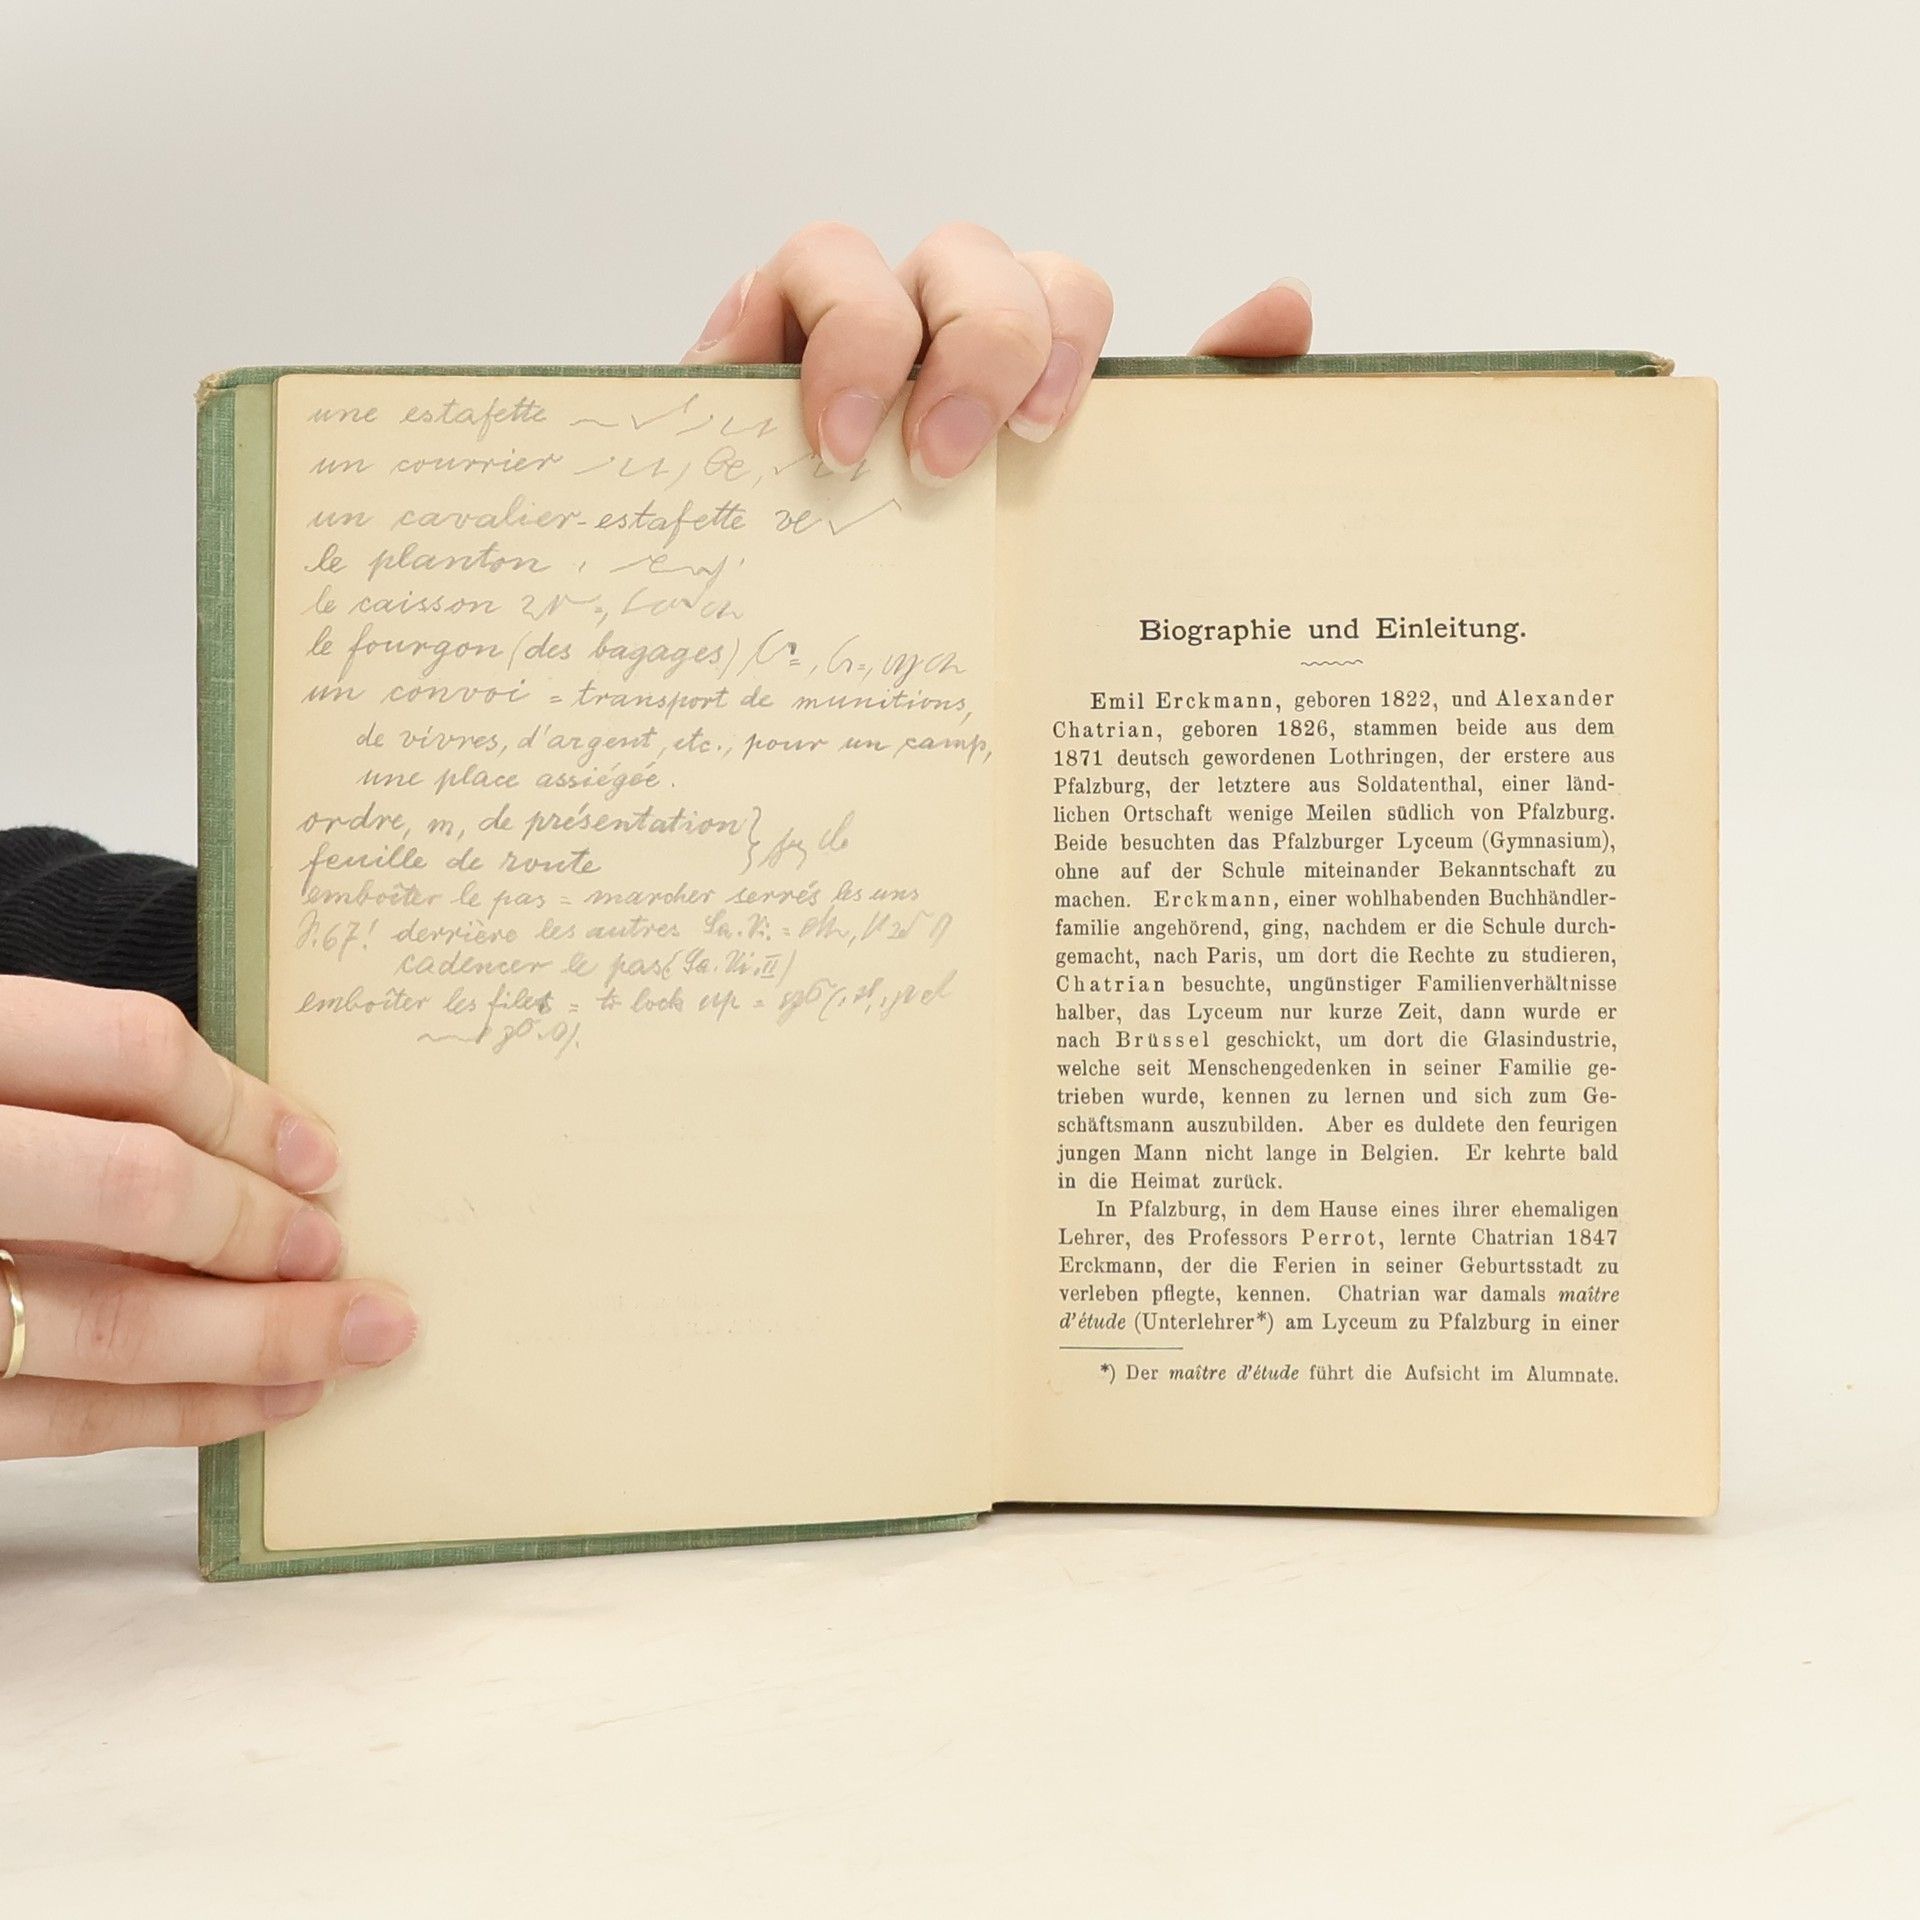 une estafette
un courrier
un cavalier-estafette
le planton
le caisson
le fourgon (des bagages)
un convoi = transport de munitions,
de vivres, d'argent, etc., pour un camp,
une place assiégée.
ordre, m, de présentation
feuille de route
emboîter le pas = marcher serrés les uns
S. 67! derrière les autres Sa. Vi. =
cadencer le pas (Sa. Vi. II)
emboîter les files = to lock up =
Biographie und Einleitung.
Emil Erckmann, geboren 1822, und Alexander
Chatrian, geboren 1826, stammen beide aus dem
1871 deutsch gewordenen Lothringen, der erstere aus
Pfalzburg, der letztere aus Soldatenthal, einer länd-
lichen Ortschaft wenige Meilen südlich von Pfalzburg.
Beide besuchten das Pfalzburger Lyceum (Gymnasium),
ohne auf der Schule miteinander Bekanntschaft zu
machen. Erckmann, einer wohlhabenden Buchhändler-
familie angehörend, ging, nachdem er die Schule durch-
gemacht, nach Paris, um dort die Rechte zu studieren,
Chatrian besuchte, ungünstiger Familienverhältnisse
halber, das Lyceum nur kurze Zeit, dann wurde er
nach Brüssel geschickt, um dort die Glasindustrie,
welche seit Menschengedenken in seiner Familie ge-
trieben wurde, kennen zu lernen und sich zum Ge-
schäftsmann auszubilden. Aber es duldete den feurigen
jungen Mann nicht lange in Belgien. Er kehrte bald
in die Heimat zurück.
In Pfalzburg, in dem Hause eines ihrer ehemaligen
Lehrer, des Professors Perrot, lernte Chatrian 1847
Erckmann, der die Ferien in seiner Geburtsstadt zu
verleben pflegte, kennen. Chatrian war damals maître
d'étude (Unterlehrer*) am Lyceum zu Pfalzburg in einer
*) Der maître d'étude führt die Aufsicht im Alumnate.